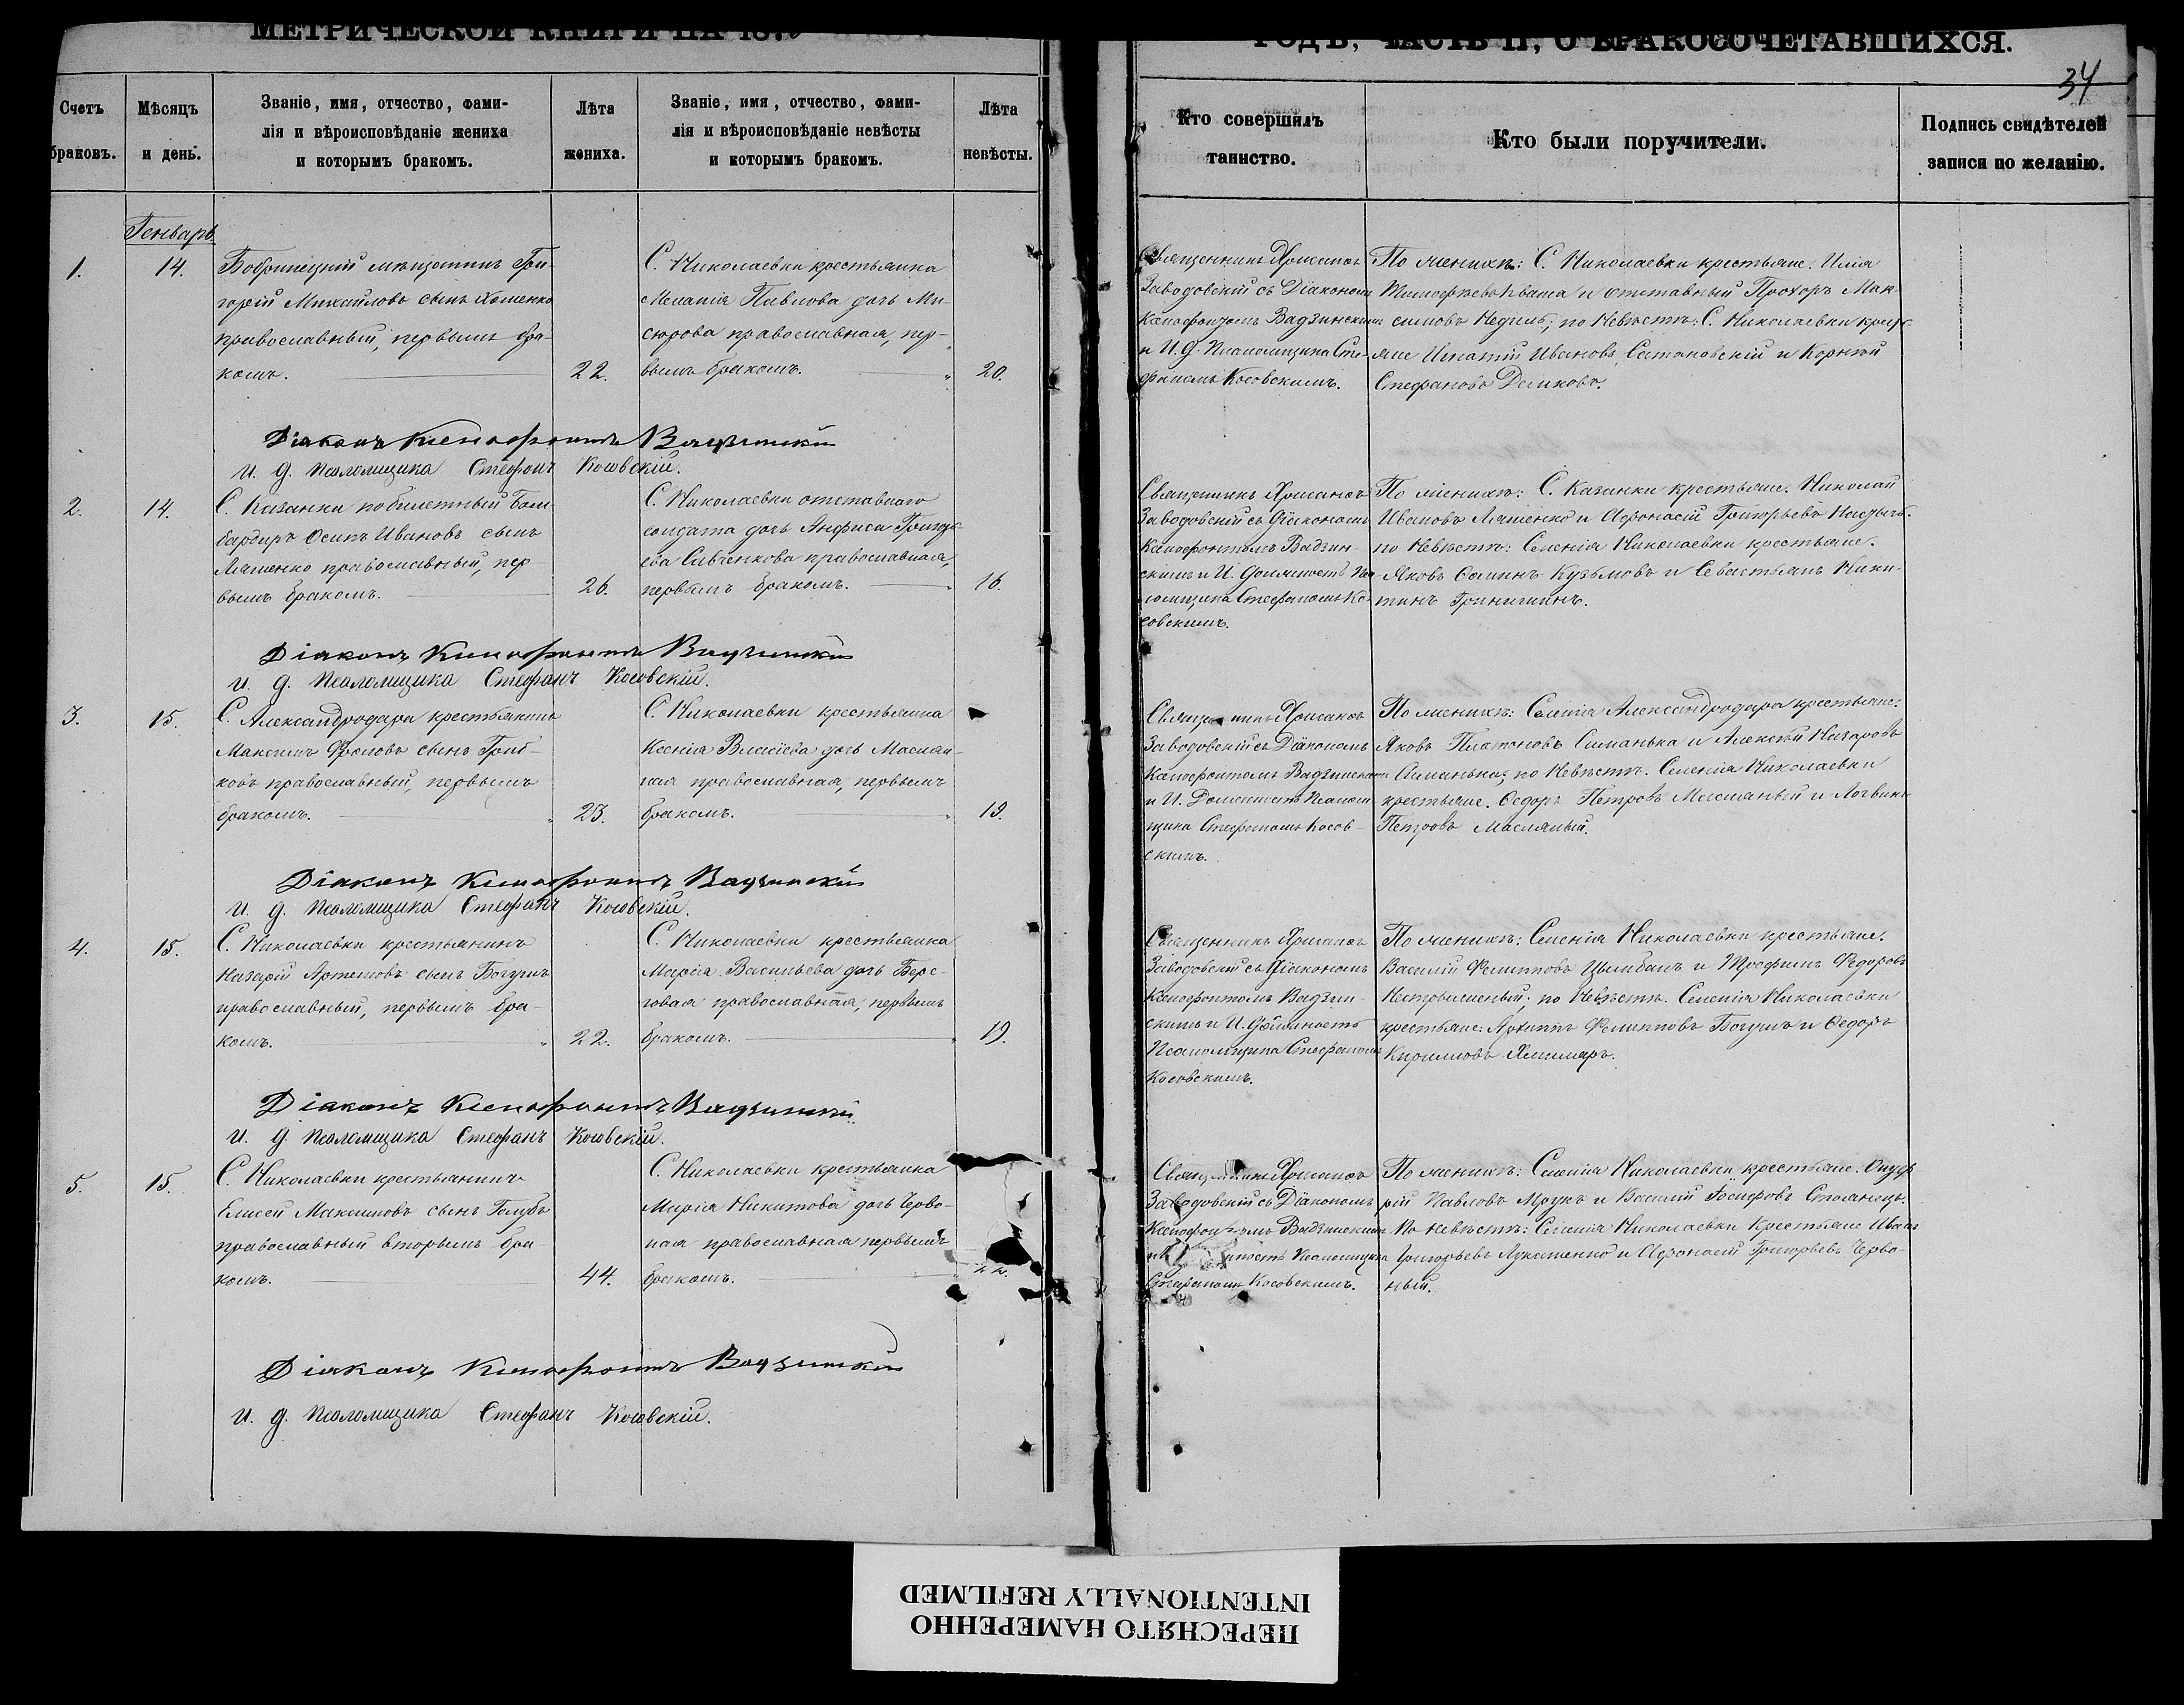 МЕТРИЧЕСКОЙ КНИГИ НА 187
ГОДЪ, ЧАСТЬ II, О БРАКОСОЧЕТАВШИХСЯ.
34
Счетъ браковъ.
Мѣсяцъ и день.
Званіе, имя, отчество, фами-
лія и вѣроисповѣданіе жениха
и которымъ бракомъ.
Лѣта жениха.
Званіе, имя, отчество, фами-
лія и вѣроисповѣданіе невѣсты
и которымъ бракомъ.
Лѣта невѣсты.
Кто совершилъ
таинство.
Кто были поручители.
Подпись свидѣтелей
записи по желанію.
Генварь
1.
14.
Бобринецкій мѣщанинъ Гри-
горій Михайловъ сынъ Хоменко
православный, первымъ бра-
комъ.
22.
С. Николаевки крестьянка
Меланія Павлова дочь Ми-
сюрова православная, пер-
вымъ бракомъ.
20.
Священникъ Хрисанѳъ
Заводовскій съ Діакономъ
Ксенофонтомъ Вадзинскимъ
и И. Д. Псаломщика Сте-
фаномъ Косовскимъ.
По женихѣ: С. Николаевки крестьяне. Илія
Тимофѣевъ Кваша и отставный Прохоръ Мак-
симовъ Недиль; по Невѣстѣ: С. Николаевки крест-
яне Игнатій Ивановъ и Корнѣй
Стефановъ Демковъ.
Діаконъ Ксенофонтъ Вадзинскій
И. д. Псаломщика Стефанъ Косовскій.
2.
14.
С. Казанки побилетный Бом-
бардиръ Осипъ Ивановъ сынъ
Ляшенко православный, пер
вымъ бракомъ.
26.
С. Николаевки отставнаго
солдата дочь Анфиса Григорь-
ева Савченкова православная,
первымъ бракомъ.
16.
Священникъ Хрисанѳъ
Заводовскій съ Діакономъ
Ксенофонтомъ Вадзин-
скимъ и И. должность Пса
ломщика Стефаномъ Ко-
совскимъ.
По женихѣ: С. Казанки крестьяне. Николай
Ивановъ Ляшенко и Афонасій Григорьевъ
по Невѣстѣ: Селенія Николаевки крестьяне.
Яковъ Кузьмовъ и Севастьянъ Ники-
тинъ
Діаконъ Ксенофонтъ Вадзинскій
И. д. Псаломщика Стефанъ Косовскій.
3.
15.
С. Александродара крестьянинъ
Максимъ Фроловъ сынъ Гриб-
ковъ православный, первымъ
бракомъ.
23.
С. Николаевки крестьянка
Ксенія Власіева дочь Маслян-
ная православная, первымъ
бракомъ.
19.
Священникъ Хрисанѳъ
Заводовскій съ Діакономъ
Ксенофонтомъ Вадзинскимъ
и И. Должность Псалом
щика Стефаномъ Косов-
скимъ.
По женихѣ: Селенія Александродара крестьяне.
Яковъ Платоновъ Симанька и Алексѣй Назаровъ
Симанька; по Невѣстѣ. Селенія Николаевки
крестьяне. Ѳедоръ Петровъ Масляный и Логвинъ
Петровъ Масляный.
Діаконъ Ксенофонтъ Вадзинскій
И. д. Псаломщика Стефанъ Косовскій.
4.
15.
С. Николаевки крестьянинъ
Назарій Артемовъ сынъ Богушъ
православный, первымъ бра-
комъ.
22.
С. Николаевки крестьянка
Марія Васильева дочь Бере-
говая православная, первымъ
бракомъ.
19.
Священникъ Хрисанѳъ
Заводовскій съ Діакономъ
Ксенофонтомъ Вадзин-
скимъ и И. Должность
Псаломщика Стефаномъ
Косовскимъ.
По женихѣ: Селенія Николаевки крестьяне.
Василій Филипповъ Цымбалъ и Трофимъ Федоровъ
по Невѣстѣ. Селенія Николаевки
крестьяне: Архипъ Филипповъ Богушъ и Ѳедоръ
Кирилловъ
Діаконъ Ксенофонтъ Вадзинскій
И. д. Псаломщика Стефанъ Косовскій.
5.
15.
С. Николаевки крестьянинъ
Елисей Максимовъ сынъ Голубъ
православный вторымъ бра
комъ.
44.
С. Николаевки крестьянка
Марія Никитова дочь Черво-
ная православная первымъ
бракомъ.
22.
Священникъ Хрисанѳъ
Заводовскій съ Діакономъ
Ксенофонтомъ Вадзинскимъ
Псаломщика
Стефаномъ Косовскимъ.
По женихѣ: Селенія Николаевки крестьяне. Онуф
рій Павловъ и Василій Іосифовъ
По невѣстѣ: Селенія Николаевки Крестьяне Иванъ
Григорьевъ Лукашенко и Афонасій Григорьевъ Черво-
ный.
Діаконъ Ксенофонтъ Вадзинскій
И. д. Псаломщика Стефанъ Косовскій.
ПЕРЕСНЯТО НАМЕРЕННО
INTENTIONALLY REFILMED